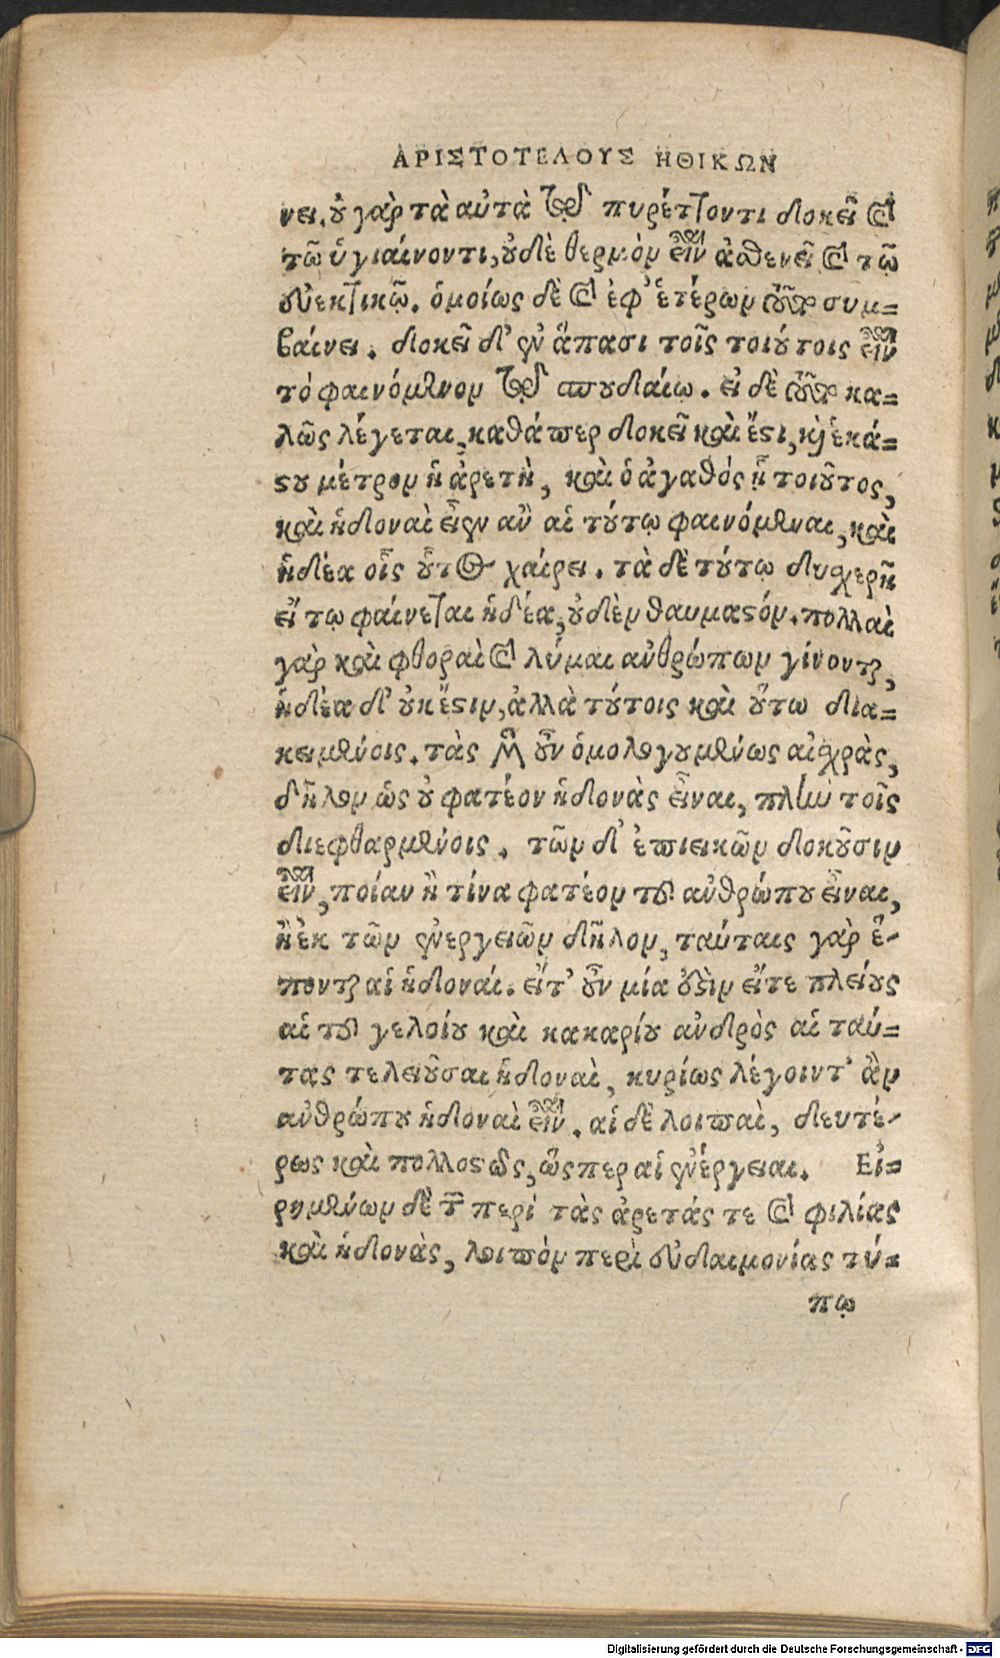 ΑΡΙΣΤΟΤΕΛΟΥΣ ΗΘΙΚΩΝ
νει. ȣ̓ γὰρ τὰ αὐτὰ τῷ πυρέτ]οντι δοκεῖ καὶ
τῶ ὑγιαίνοντι, ȣ̓δὲ θερμὸμ εἶναι ἀσθενεῖ καὶ τῶ
εὐεκτικῷ. ὁμοίως δὲ καὶ ἐφ' ἑτέρωμ τοῦτο συμ=
βαίνει. δοκεῖ δ' ἐν ἅπασι τοῖς τοιȣ́τοις εἶναι
τὸ φαινόμενομ τῷ σπȣδαίῳ. εἰ δὲ τοῦτο κα=
λῶς λέγεται, καθάπερ δοκεῖ καὶ ἔςι, καὶ ἑκά=
ςȣ μέτρομ ἡ ἀρετὴ, καὶ ὁ ἀγαθός ᾗ τοιȣ͂τος,
καὶ ἡδοναὶ εἶεν ἂν αἱ τȣ́τῳ φαινόμεναι, καὶ
ἡδέα οἷς ȣ͂τος χαίρει. τὰ δὲ τȣ́τῳ δυχερῆ
εἴ τῳ φαίνεται ἡδέα, ȣ̓δὲμ θαυμαςόμ. πολλαὶ
γὰρ καὶ φθοραὶ καὶ λύμαι ἀνθρώπωμ γίνονται,
ἡδέα δ' ȣκ ἔςιμ, ἀλλὰ τȣ́τοις καὶ ȣ̔́τω δια=
κειμένοις. τὰς μὲν ȣ̓͂ν ὁμολογȣμένως αἰχρὰς,
δῆλομ ὡς ȣ̓ φατέον ἡδονὰς εἶναι, πλὴν τοῖς
διεφθαρμένοις. τῶμ δ' ἐπιεικῶμ δοκȣ͂σιμ
εἶναι, ποίαν ἢ τίνα φατέομ τȣ͂ ἀνθρώπȣ εἶναι,
ἢ ἐκ τῶμ ἐνεργειῶμ δῆλομ, ταύταις γὰρ ἕ-
πονται αἱ ἡδοναί. εἴτ' ȣ̓͂ν μία ȣ̓ςὶμ εἴτε πλείȣς
αἱ τȣ͂ γελοίȣ καὶ κακαρίȣ ἀνδρὸς αἱ ταύ=
τας τελειȣ͂σαι ἡδοναὶ, κυρίως λέγοιντ' ἂμ
ἀνθρώπȣ ἡδοναὶ εἶναι. αἱ δὲ λοιπαὶ, δευτέ-
ρως καὶ πολλοςῶς, ὥςπερ αἱ ἐνέργειαι. Εἰ=
ρημένωμ δὲ τῶν περὶ τὰς ἀρετάς τε καὶ φιλίας
καὶ ἡδονὰς, λοιπὸμ περὶ εὐδαιμονίας τύ=
πῳ
Digitalisierung gefördert durch die Deutsche Forschungsgemeinschaft - DFG